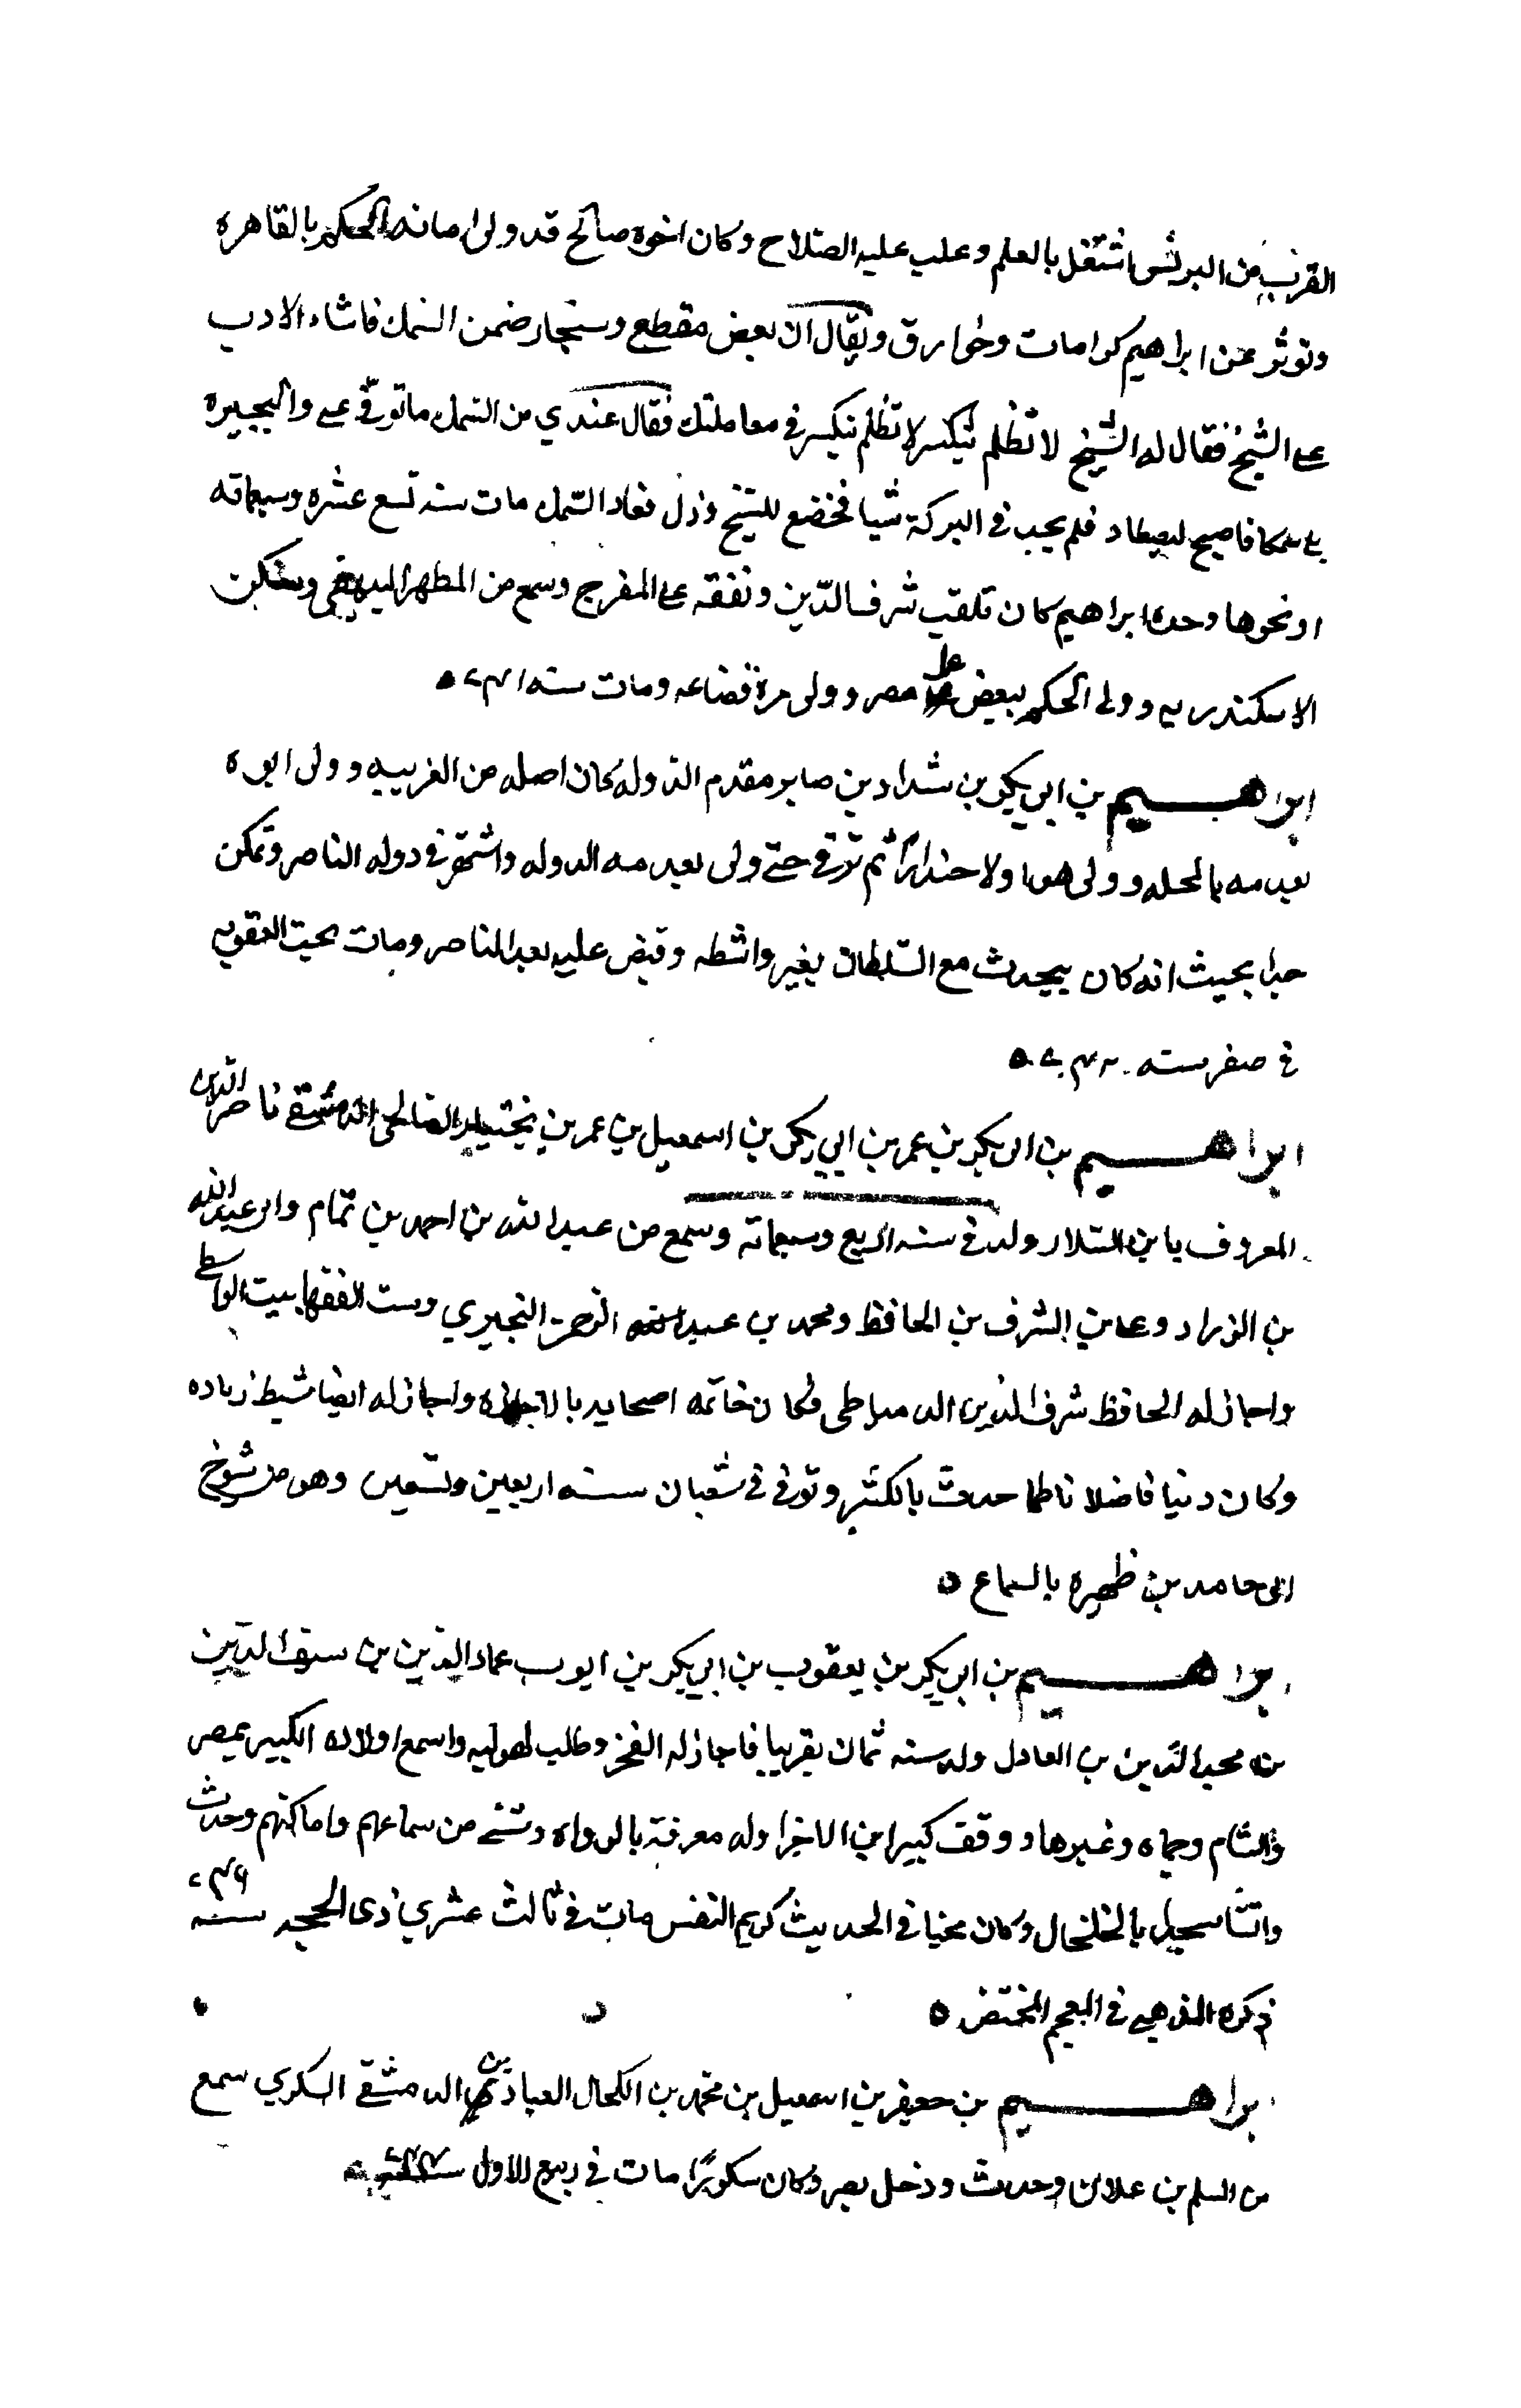 القرب من البرلس اشتغل بالعلم وغلب عليه الصلاح وكان اخوه صالح قد ولى امانه الحكم بالقاهرة
وتوثر عن ابراهيم كرامات وخوارق ويقال ان بعض مقطع وسنجار ضمن السمك فاساء الادب
على الشيخ فقال له الشيخ لا تظلم تنكسر لا تظلم تنكسر في معاملتك فقال عندي من السمك ما توقى على والبحيرة
سمكا فاصبح ليصطاد فلم يجب في البركة شيا فخضع للشيخ وذل فعاد السمك مات سنه تسع عشره وسبعمائه
او نحوها وجده ابراهيم كان تلقب شرف الدين وتفقه على المفرج وسمع من المطهر البيهقي وسكن
الاسكندريه وولى الحكم ببعض عمل مصر وولى مرة قضاعه ومات سنه ٧٣١
ابراهيم بن ابي بكر بن شداد بن صابر مقدم الدوله كان اصله من الغربيه وولى ابوه
بعدمه بالمحله وولى هو اولا خنداراً ثم ترقى حتى ولى بعدمه الدوله واشتهر في دوله الناصر وتمكن
جدا بحيث انه كان يتحدث مع السلطان بغير واسطه وقبض عليه بعد الناصر ومات تحت العقوبه
في صفر سنه ٧٤٢
ابراهيم بن ابى بكر بن عمر بن ابي بكر بن اسمعيل بن عمر بن بختيار الصالحى الدمشقي ناصر الدين
المعروف بابن السلار ولد في سنه اربع وسبعمائه وسمع من عبد الله بن احمد بن تمام وابى عبد الله
بن الزراد وعلى بن الشرف بن الحافظ ومحمد بن عبد الرحمن البجيري وست الفقها بنت الواسطى
واجاز له الحافظ شرف الدين الدمياطى وكان خاتمه اصحابه بالاجازه واجاز له ايضا شيط زياده
وكان دينا فاضلا ناظما حدث بالكثير وتوفي في شعبان سنه اربعين وتسعين وهو من شيوخ
ابى حامد بن ظهيره بالسماع
ابراهيم بن ابي بكر بن يعقوب بن ابي بكر بن ايوب عماد الدين بن سيف الدين
بن مجد الدين بن العادل ولد سنه ثمان تقريبا فاجاز له الفخر وطلب لهوليه واسمع اولاده الكبير بمصر
والشام وحماه وغيرها ووقف كبيرا من الاجزا وله معرفة بالرواه وشئ من سماعهم واماكنهم وحدث
وانشا سجيل بالخلخال وكان محبا في الحديث كريم النفس مات في ثالث عشري ذى الحجه سنه ٧٤٩
ذكره الذهبي في المعجم المختص
ابراهيم بن جعفر بن اسمعيل بن محمد بن الكحال العبادي ثم الدمشقي السكري سمع
من المسلم بن علان وحدث ودخل بصر وكان سكريا مات في ربيع الاول